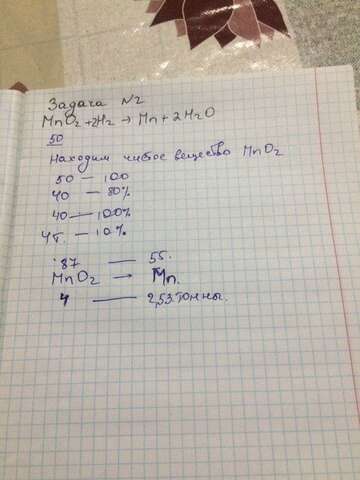 Задача №2
MnO₂ + 2H₂ → Mn + 2H₂O
50
Находим чистое вещество MnO₂
50 — 100
40 — 80%
40 — 100%
4т. — 10%
87 — 55.
MnO₂ → Mn.
4 — 2,53 тонны.